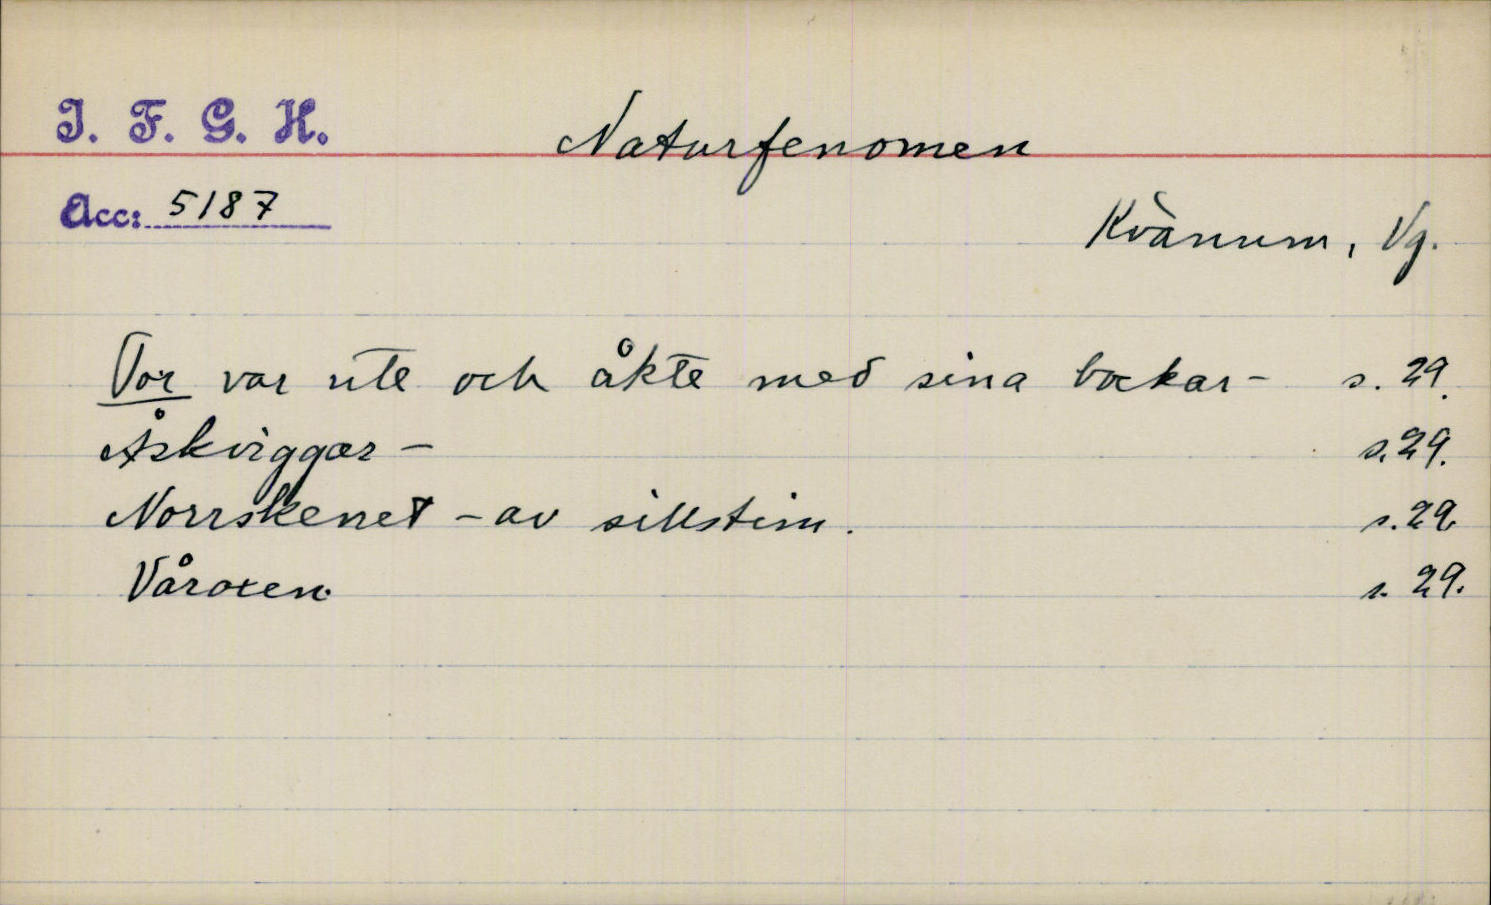 I. F. G. H.
Naturfenomen
Acc: 5187
Kvänum, Vg.
Tor var ute och åkte med sina bockar - s. 29.
Åskviggar - s. 29.
Norrskenet - av sillstim. s. 29.
Våroxen. s. 29.